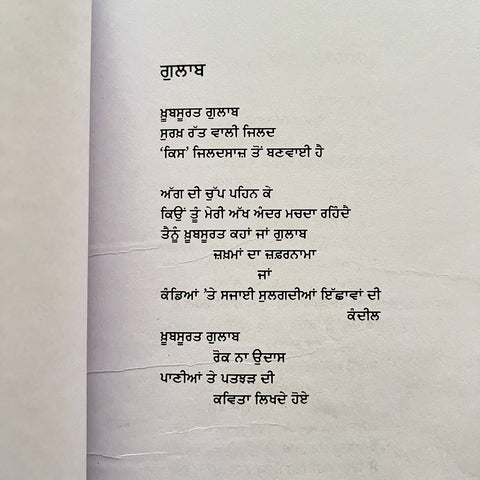 ਗੁਲਾਬ
ਖ਼ੂਬਸੂਰਤ ਗੁਲਾਬ
ਸੁਰਖ਼ ਰੱਤ ਵਾਲੀ ਜਿਲਦ
‘ਕਿਸ’ ਜਿਲਦਸਾਜ਼ ਤੋਂ ਬਣਵਾਈ ਹੈ
ਅੱਗ ਦੀ ਚੁੱਪ ਪਹਿਨ ਕੇ
ਕਿਉਂ ਤੂੰ ਮੇਰੀ ਅੱਖ ਅੰਦਰ ਮਚਦਾ ਰਹਿੰਦੈ
ਤੈਨੂੰ ਖ਼ੂਬਸੂਰਤ ਕਹਾਂ ਜਾਂ ਗੁਲਾਬ
ਜ਼ਖ਼ਮਾਂ ਦਾ ਜ਼ਫ਼ਰਨਾਮਾ
ਜਾਂ
ਕੰਡਿਆਂ ’ਤੇ ਸਜਾਈ ਸੁਲਗਦੀਆਂ ਇੱਛਾਵਾਂ ਦੀ
ਕੰਦੀਲ
ਖ਼ੂਬਸੂਰਤ ਗੁਲਾਬ
ਰੋਕ ਨਾ ਉਦਾਸ
ਪਾਣੀਆਂ ਤੇ ਪਤਝੜ ਦੀ
ਕਵਿਤਾ ਲਿਖਦੇ ਹੋਏ